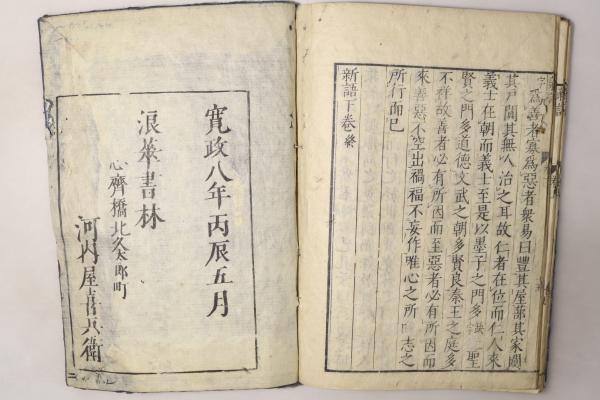 為善者寡為惡者衆易曰豐其屋蔀其家闚
其戸闃其無人治之耳故仁者在位而仁人來
義士在朝而義士至是以墨子之門多 聖
賢之門多道德文武之朝多賢良秦王之庭多
不祥故善者必有所因而至惡者必有所因而
來善惡不空出禍福不妄作唯心之所 志之
所行而已
新語下卷終
寛政八年丙辰五月
浪華書林
心齊橋北久太郎町
河内屋喜兵衛